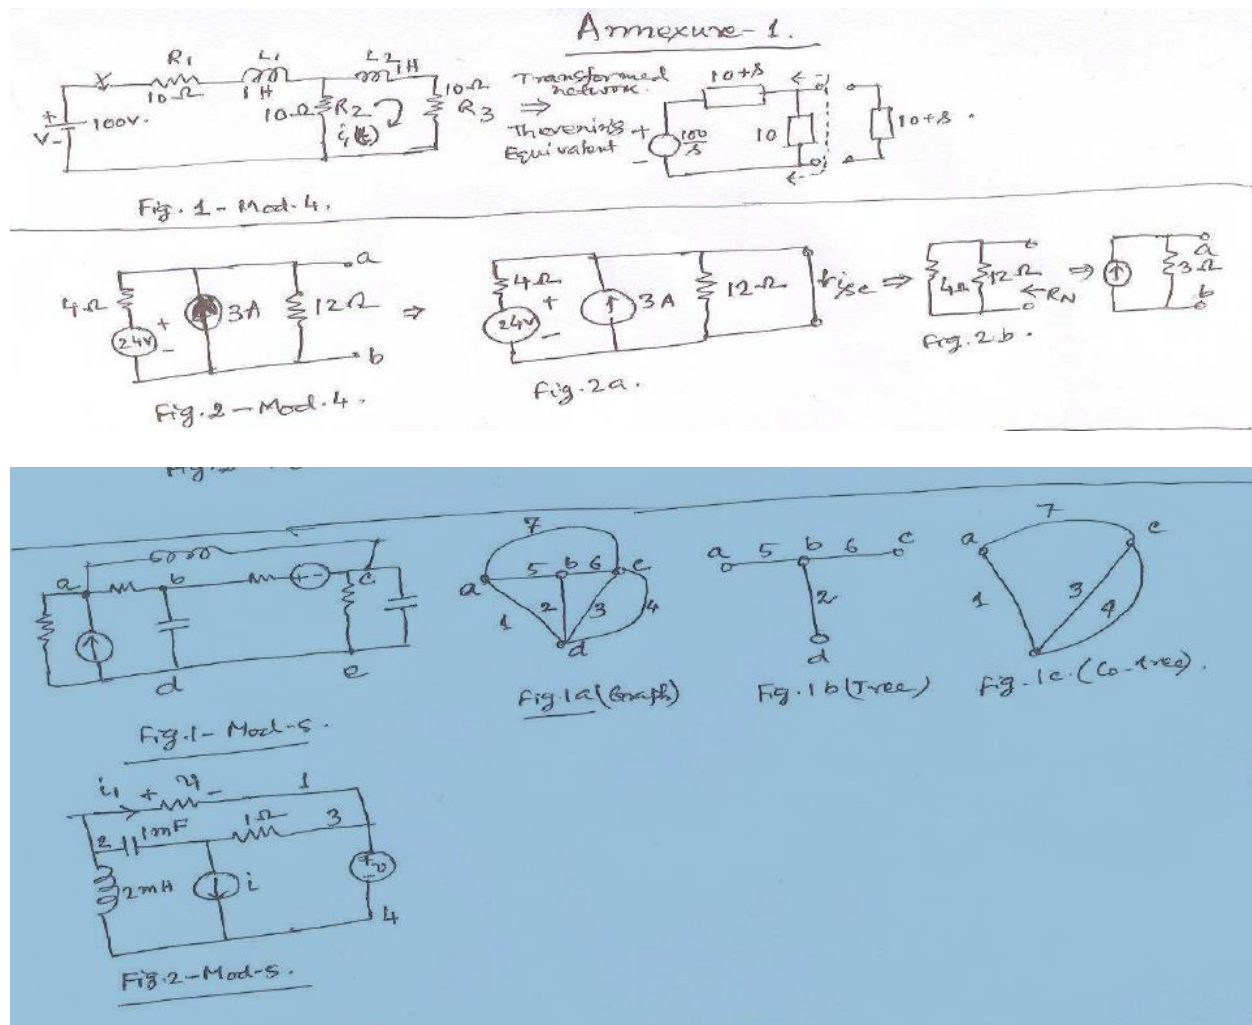 Annexure-1.
R1 L1 L2
10Ω 1H 1H
V + - 100V. 10Ω R2 10Ω R3
i1(t)
Transformed network.
⇒
Thevenin's Equivalent
10+s
+ - 100/s 10 10+s.
Fig. 1 - Mod. 4.
4Ω 24V + - 3A 12Ω a b
⇒
4Ω 24V + - 3A 12Ω isc ⇒
4Ω 12Ω ←RN ⇒ 3Ω a b
Fig. 2 - Mod. 4.
Fig. 2a.
Fig. 2.b.
a b c
+ -
d e
Fig.1- Mod-5.
7
a 5 b 6 c
1 2 3 4
d
Fig.1a (Graph)
a 5 b 6 c
2
d
Fig. 1b (Tree)
7
a c
1 3 4
Fig. 1c. (Co-tree).
i1 + - 1
2 1mF 1Ω 3
2mH i + v -
4
Fig.2-Mod-5.